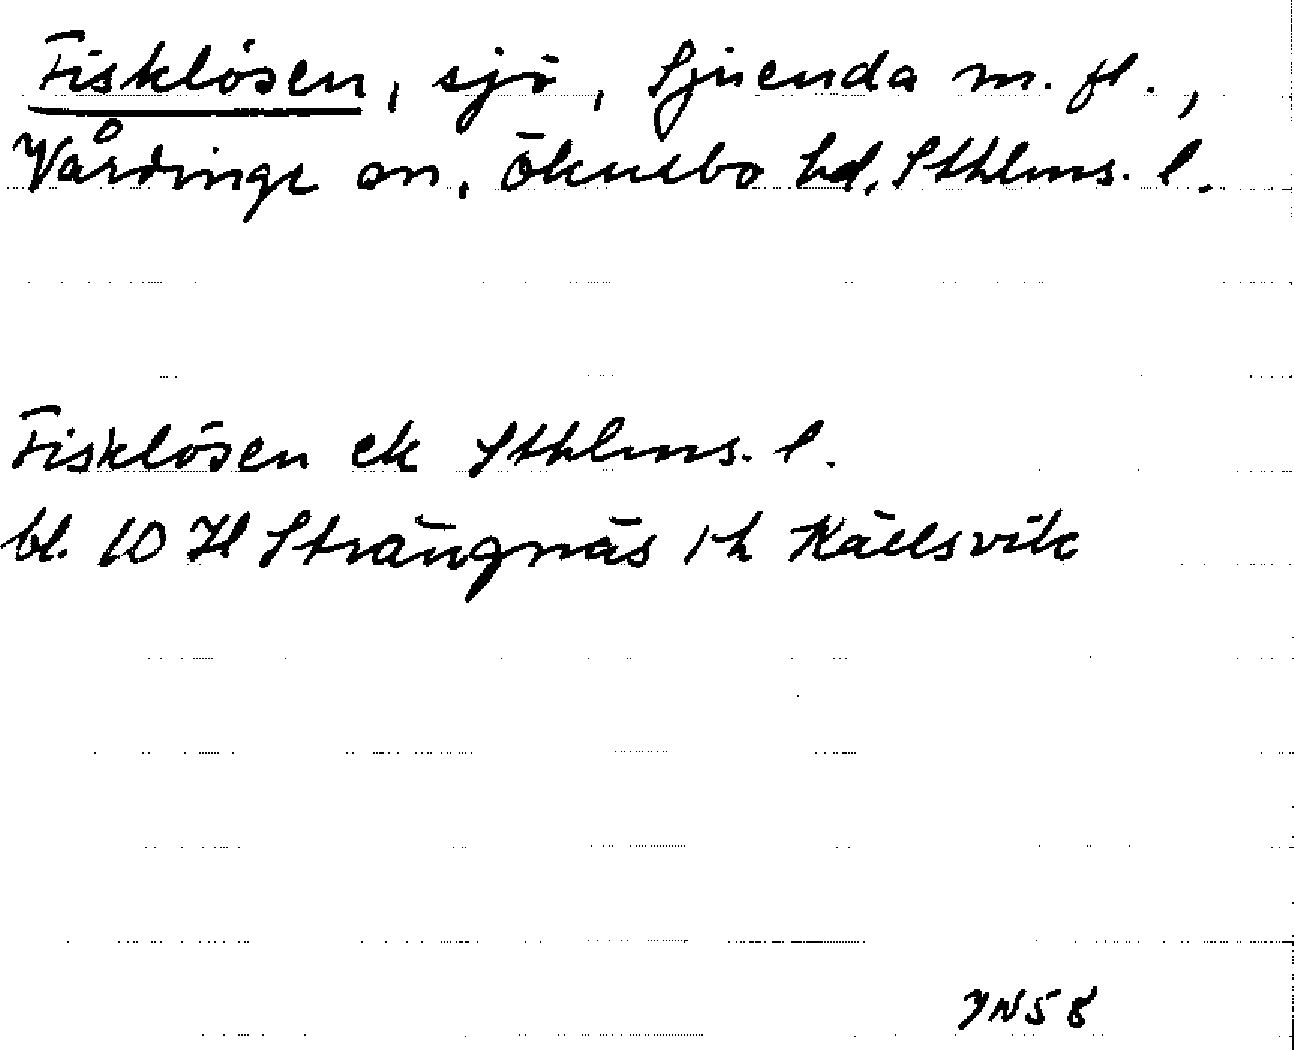 Fisklösen, sjö, Sjuenda m. fl.,
Vårdinge sn, Öknebo hd, Sthlms. l.
Fisklösen ek Sthlms. l.
bl. 10 H Strängnäs rh Källsvik
JN58